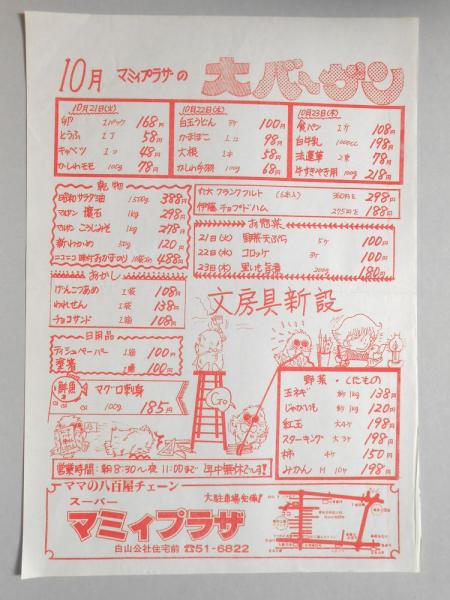 10月 マミィプラザの 大バーゲン
10月21日(火)
卵 1パック 168円
とうふ 1丁 58円
キャベツ 1コ 48円
かしわモモ 100g 78円
10月22日(水)
白玉うどん 3ケ 100円
かまぼこ 1コ 98円
大根 1本 58円
かしわ手羽 100g 68円
10月23日(木)
食パン 1ケ 108円
白牛乳 1000cc 198円
法蓮草 1束 78円
牛すきやき用 100g 218円
乾物
昭和サラダ油 1500g 388円
マルサン 懐石 1kg 298円
マルサン こうじみそ 1kg 278円
新わかめ 50g 120円
ニコニコ 味付おかずのり 488円
丸大 フランクフルト (6本入) 360円を 298円
伊藤 チョップドハム 275円を 188円
お惣菜
21日(火) 野菜天ぷら 5ケ 100円
22日(水) コロッケ 3ケ 100円
23日(木) 里いも旨煮 200g 180円
おかし
げんこつあめ 1袋 108円
われせん 1袋 138円
チョコサンド 1袋 108円
日用品
ティシュペーパー 1箱 100円
100円
鮮魚
マグロ刺身 100g 185円
文房具新設
Go
野菜・くだもの
玉ネギ 約1kg 138円
じゃがいも 約1kg 120円
紅玉 大4ケ 198円
スターキング 大3ケ 198円
柿 4ケ 150円
みかん M 10ケ 198円
営業時間:朝8:30〜夜11:00まで 年中無休です!!
ママの八百屋チェーン
スーパー
マミィプラザ
白山公社住宅前 ☎51-6822
大駐車場完備!